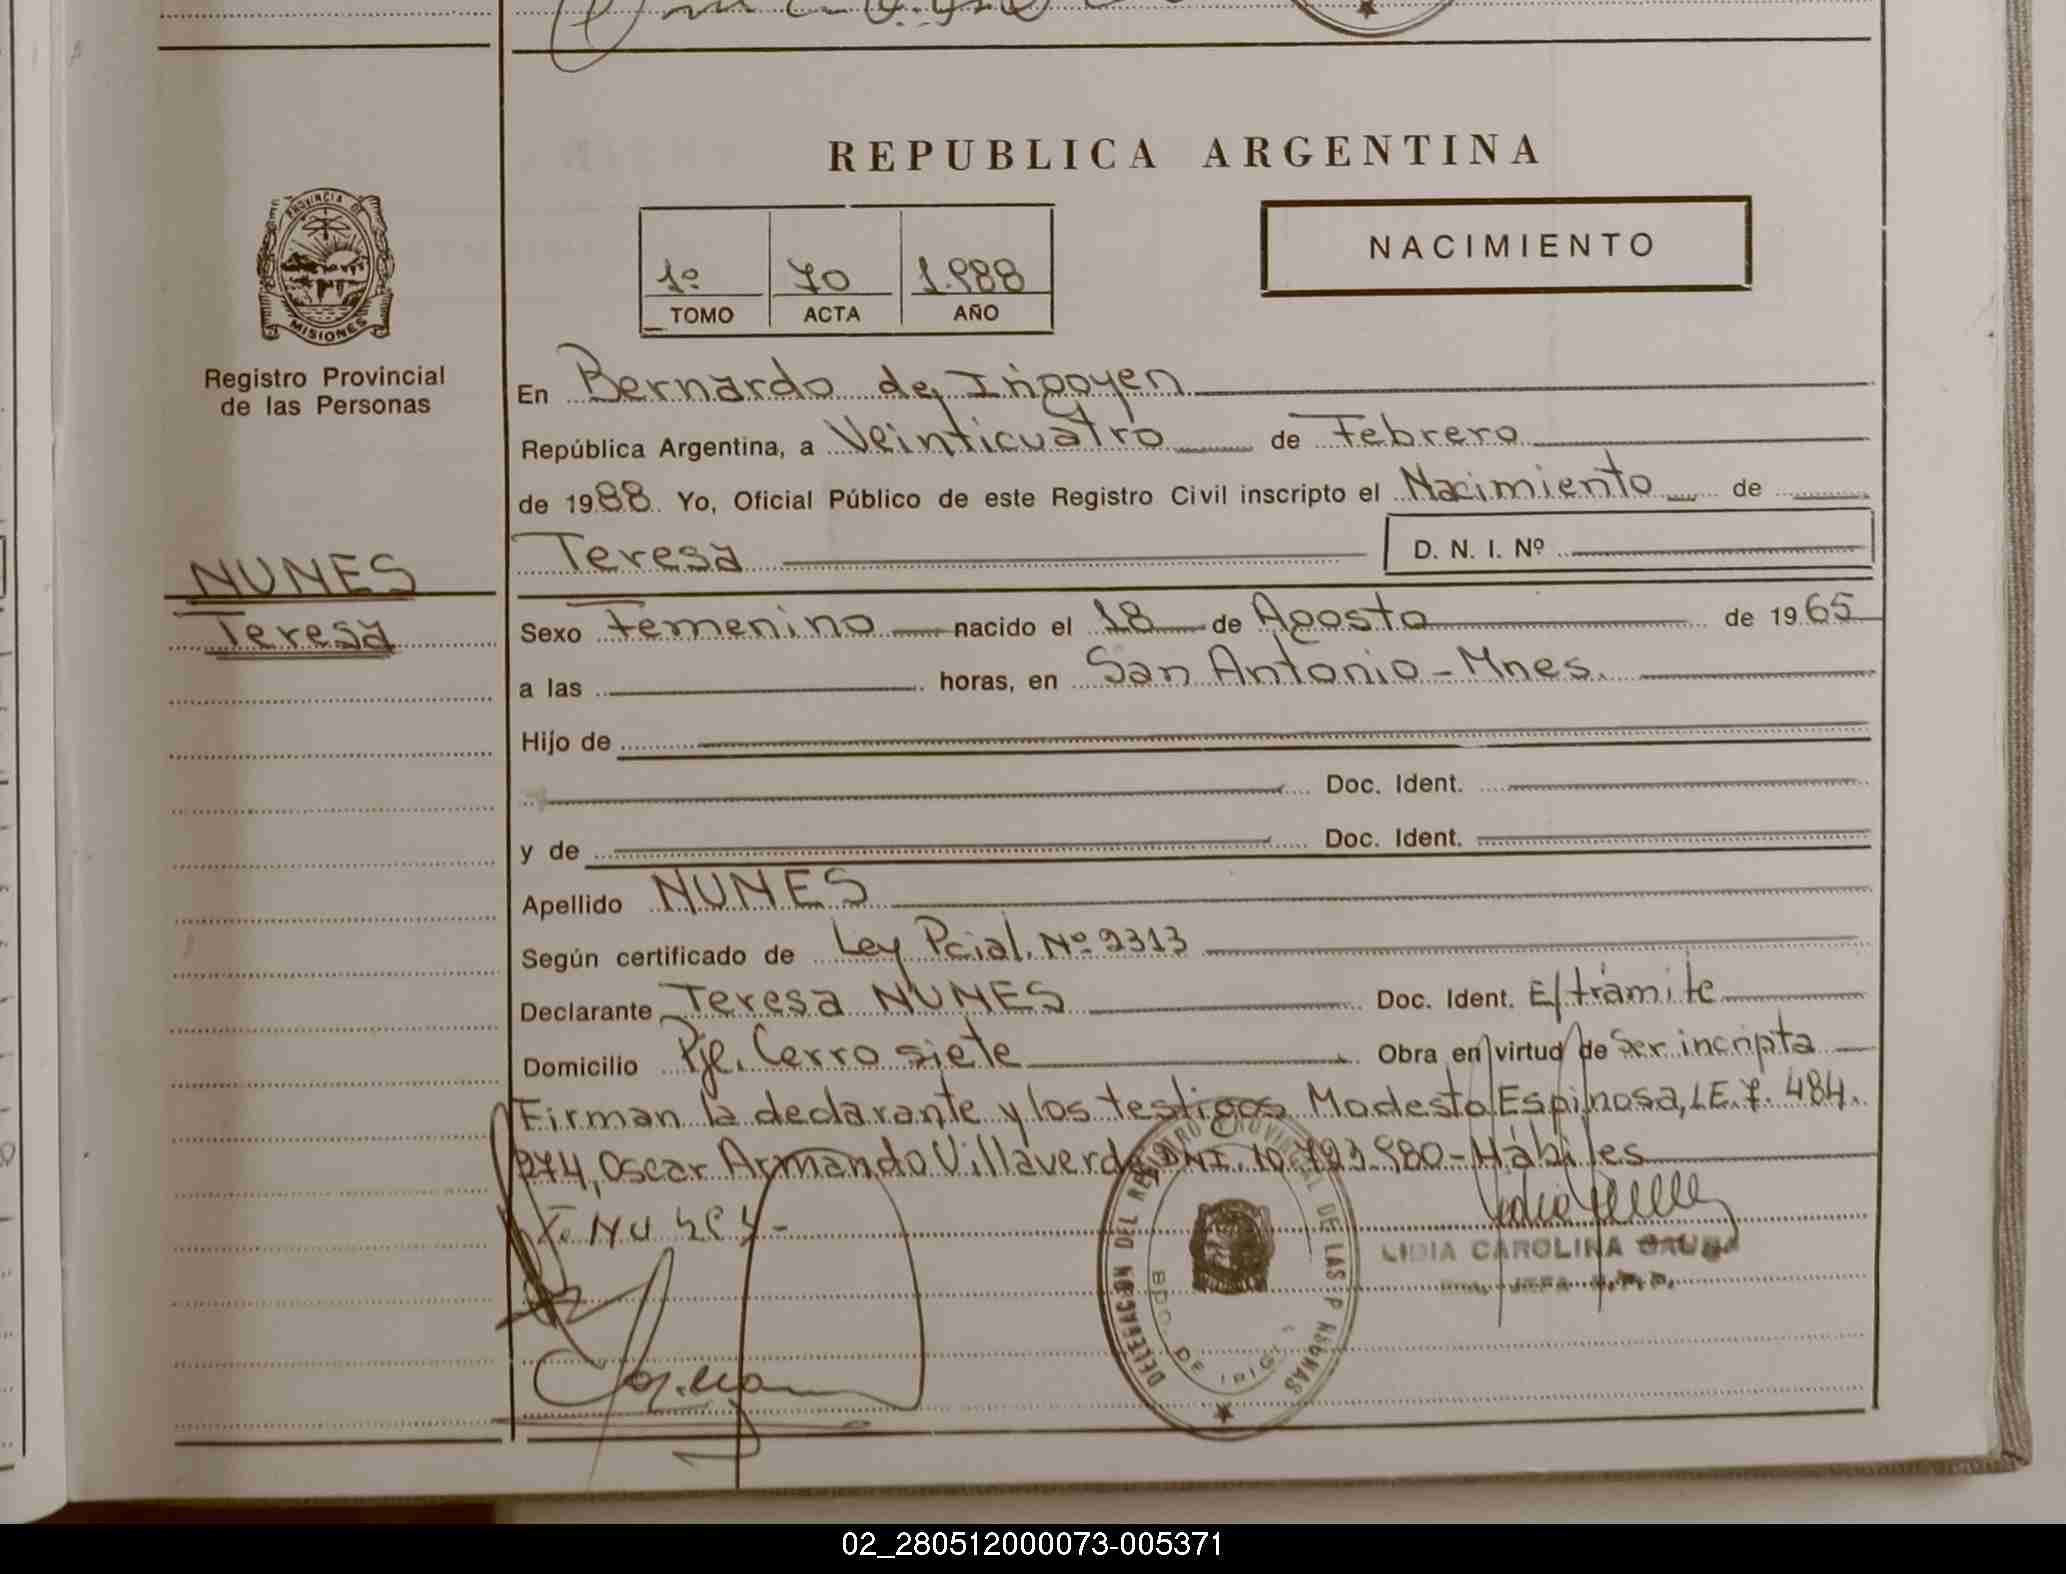 REPUBLICA ARGENTINA
PROVINCIA DE
MISIONES
Registro Provincial
de las Personas
NUNES
Teresa
1º 70 1.988
TOMO ACTA AÑO
NACIMIENTO
En Bernardo de Irigoyen
República Argentina, a Veinticuatro de Febrero
de 1988. Yo, Oficial Público de este Registro Civil inscripto el Nacimiento de
Teresa D. N. I. Nº
Sexo Femenino nacido el 18 de Agosto de 1965
a las horas, en San Antonio - Mnes.
Hijo de
Doc. Ident.
y de Doc. Ident.
Apellido NUNES
Según certificado de Ley Pcial. Nº 2313
Declarante Teresa NUNES Doc. Ident. E/trámite
Domicilio Pje. Cerro siete Obra en virtud de Ser incripta
Firman la declarante y los testigos Modesto Espinosa, L.E. 7.484.
274, Oscar Armando Villaverde, DNI. 10.793.980 - Hábiles
T. Nunes -
DELEGACION DEL REGISTRO PROVINCIAL DE LAS PERSONAS
BDO. DE IRIG
LIDIA CAROLINA
02_280512000073-005371